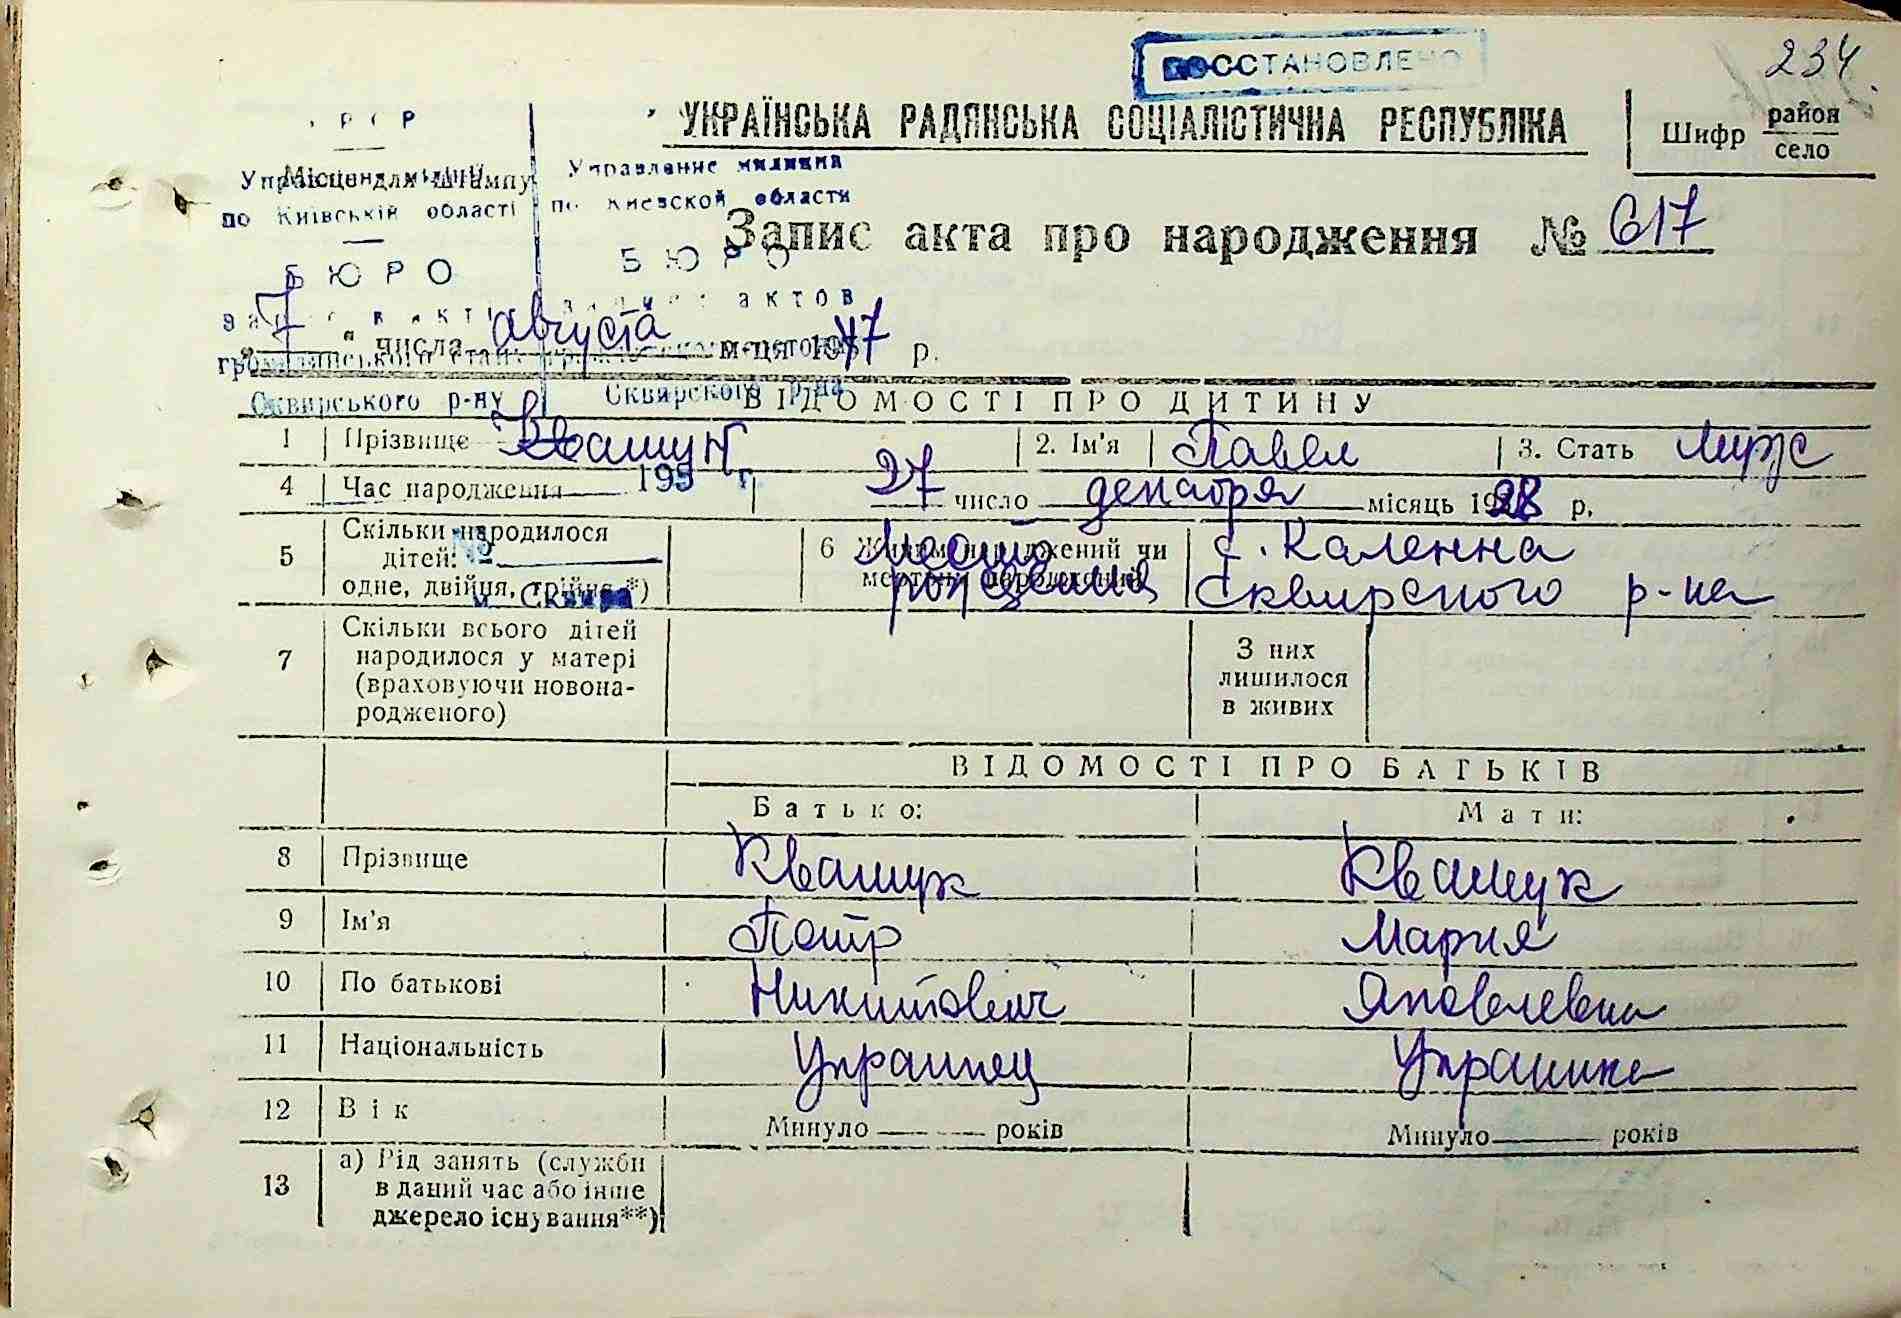 ВОССТАНОВЛЕНО
234
УКРАЇНСЬКА РАДЯНСЬКА СОЦІАЛІСТИЧНА РЕСПУБЛІКА
Шифр район
село
Місце для штампу
Управление милиции
по Київській області
по Киевской области
БЮРО
БЮРО
актов
Запис акта про народження № 617
"7" числа августа м-ця 1947 р.
Сквирського р-ну
Сквирского р-на
195 г.
№
м. Сквира
ВІДОМОСТІ ПРО ДИТИНУ
1 Прізвище Квашук 2. Ім'я Павел 3. Стать муж
4 Час народження 27 число декабря місяць 1928 р.
5 Скільки народилося
дітей:
одне, двійня, трійня *)
6 Живим народжений чи
мертвим народжений
Место
рождения
с. Каленна
Сквирского р-на
7 Скільки всього дітей
народилося у матері
(враховуючи новона-
родженого)
З них
лишилося
в живих
ВІДОМОСТІ ПРО БАТЬКІВ
Батько: Мати:
8 Прізвище Квашук Квашук
9 Ім'я Петр Мария
10 По батькові Никитович Яковлевна
11 Національність Украинец Украинка
12 Вік Минуло років Минуло років
13 а) Рід занять (служби
в даний час або інше
джерело існування**)